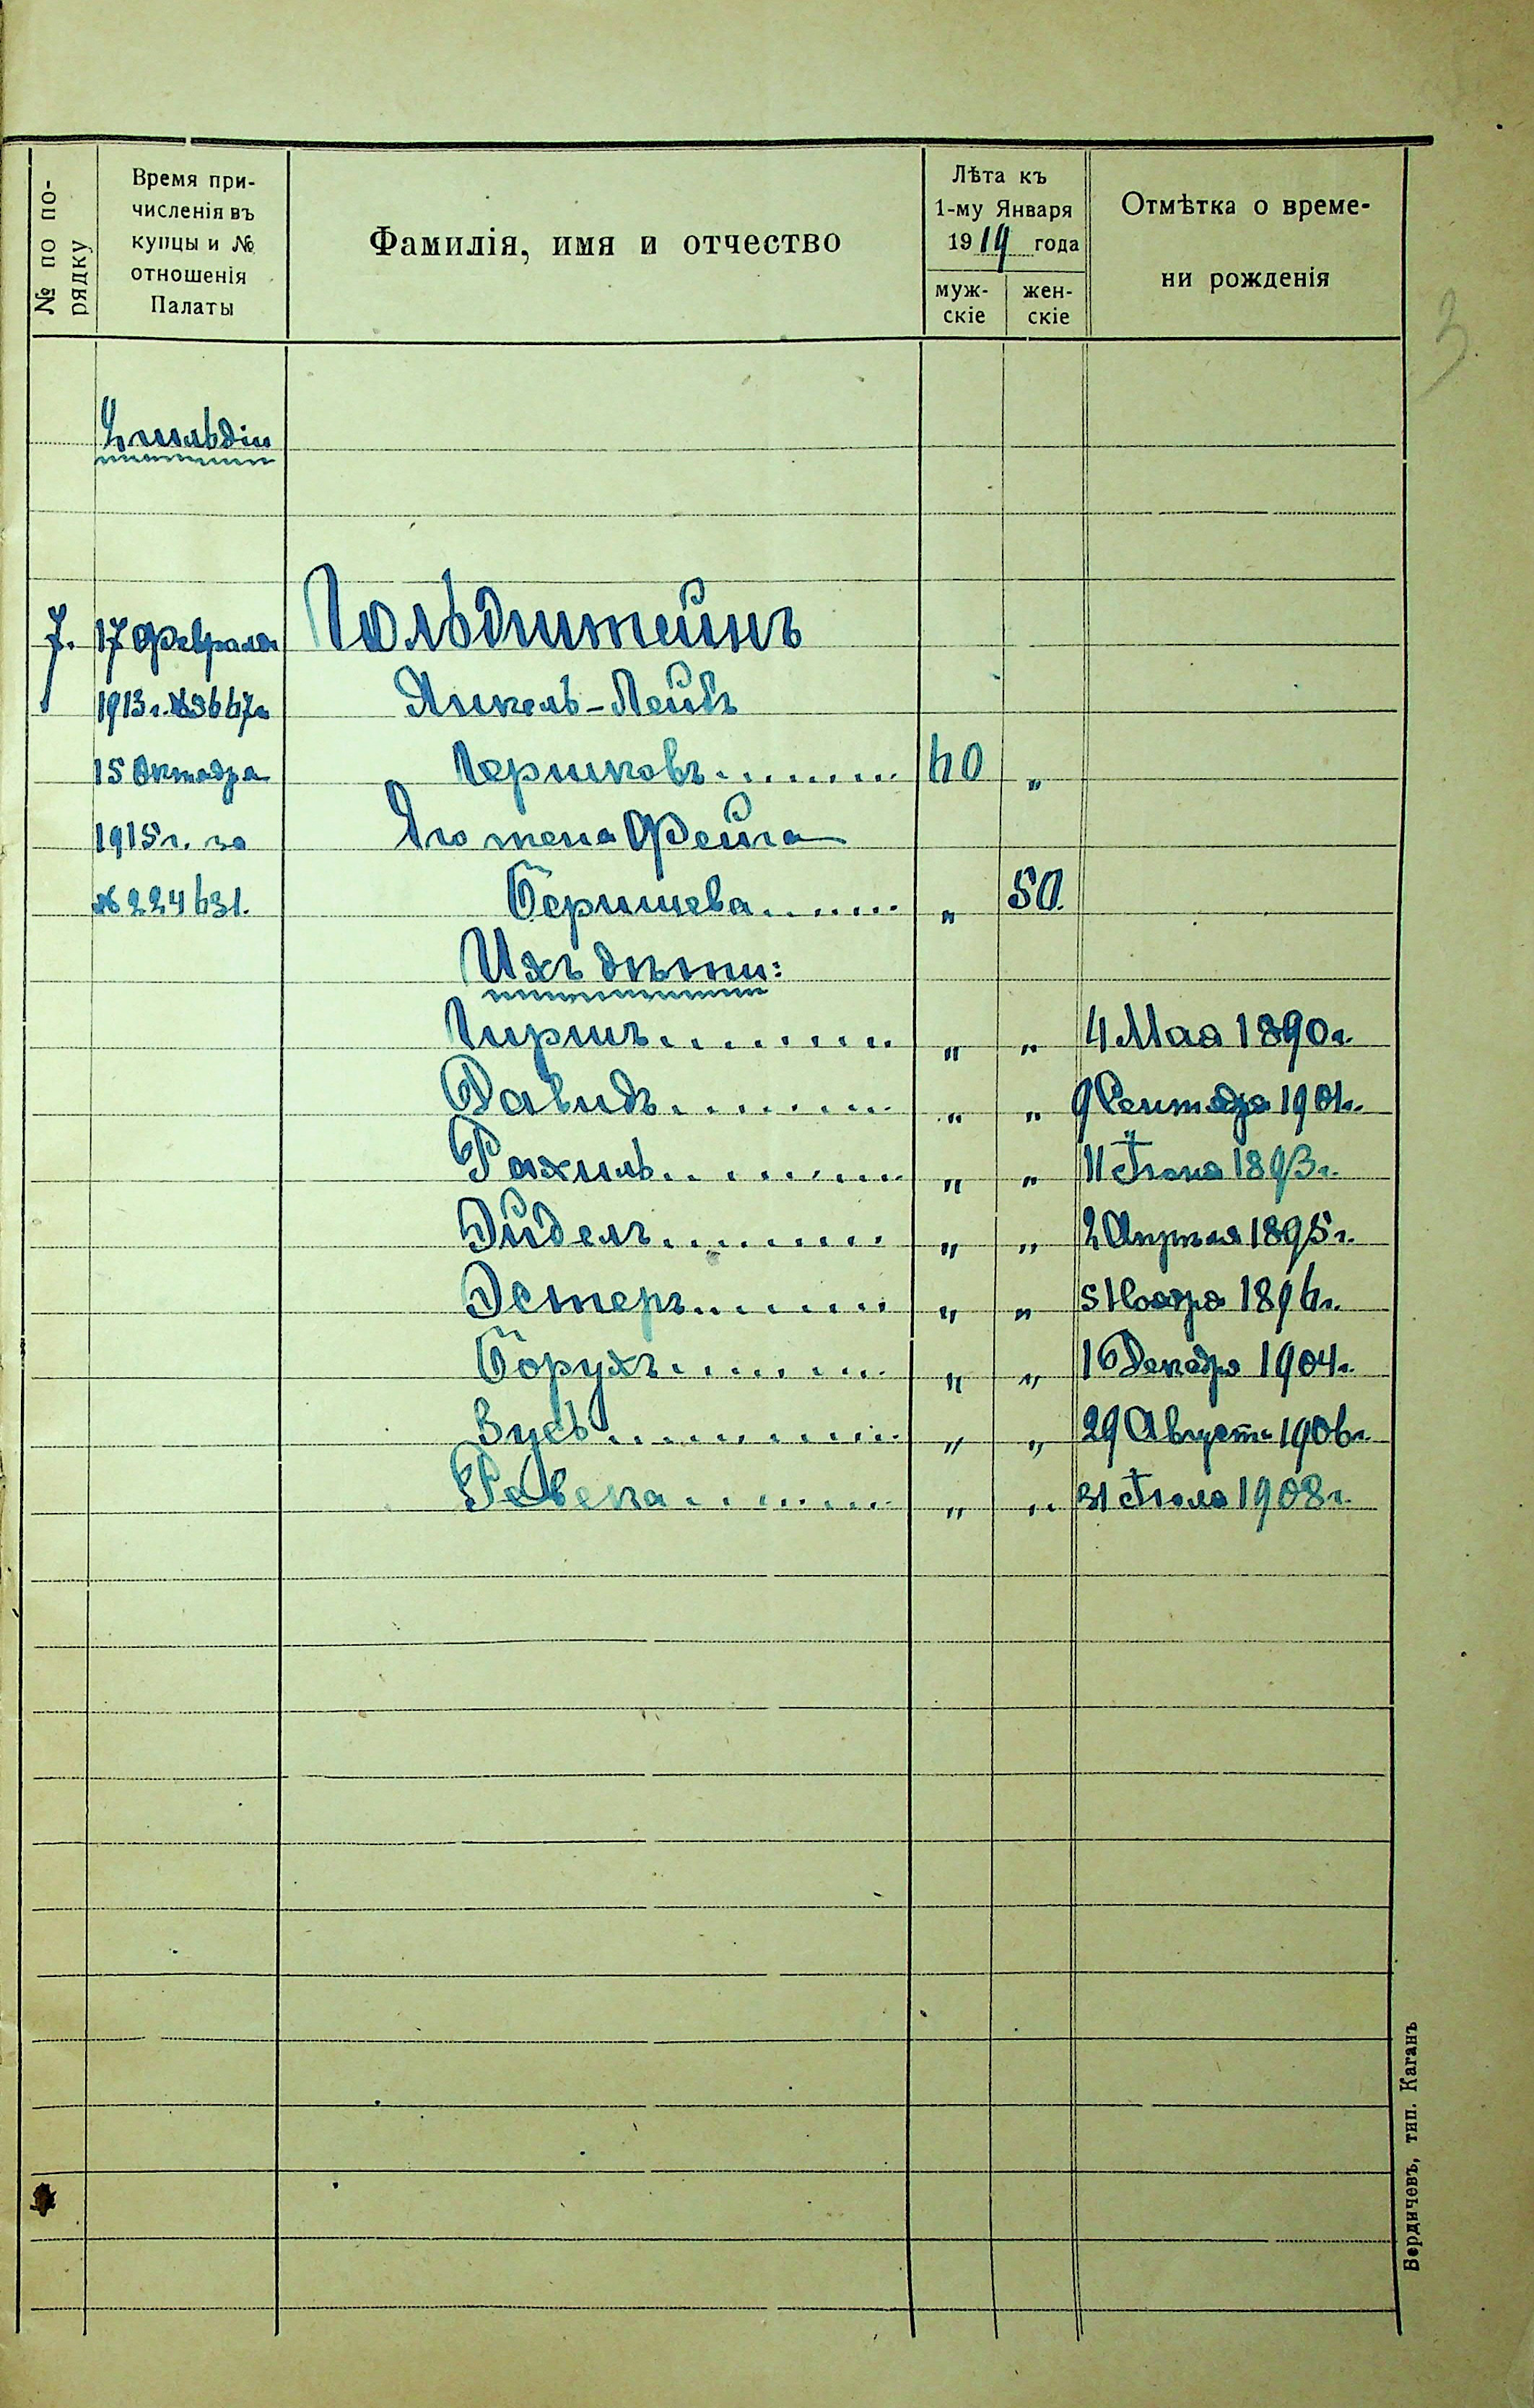 № по по-
рядку
Время при-
численія въ
купцы и №
отношенія
Палаты
Фамилія, имя и отчество
Лѣта къ
1-му Января
1914 года
муж-
скіе
жен-
скіе
Отмѣтка о време-
ни рожденія
3
2 гильдіи
7. 17 Февраля Гольдштейнъ
1913 г. № 3667 Янкель-Лейбъ
15 Октября Гершковъ......... 60 „
1915 г. за Его жена Фейга
№ 224631. Беришева....... „ 50.
Ихъ дѣти:
Гиршъ......... „ „ 4 Мая 1890 г.
Давидъ......... „ „ 9 Сентября 1901 г.
Рахиль.......... „ „ 11 Іюня 1893 г.
Эйдель......... „ „ 2 Апрѣля 1895 г.
Эстеръ........ „ „ 5 Ноября 1896 г.
Борухъ........ „ „ 16 Декабря 1904 г.
Зусь........... „ „ 29 Августа 1906 г.
Ревека......... „ „ 31 Іюля 1908 г.
Бердичевъ, тип. Каганъ